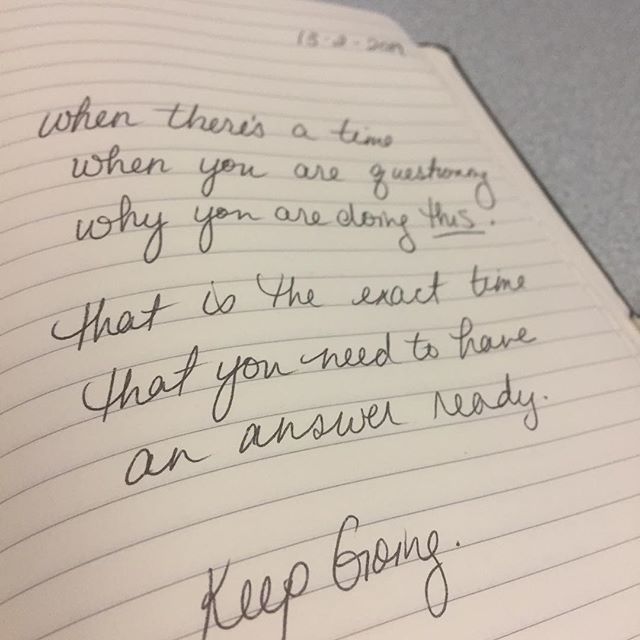 when there's a time
when you are questioning
why you are doing this.
that is the exact time
that you need to have
an answer ready.
Keep Going.